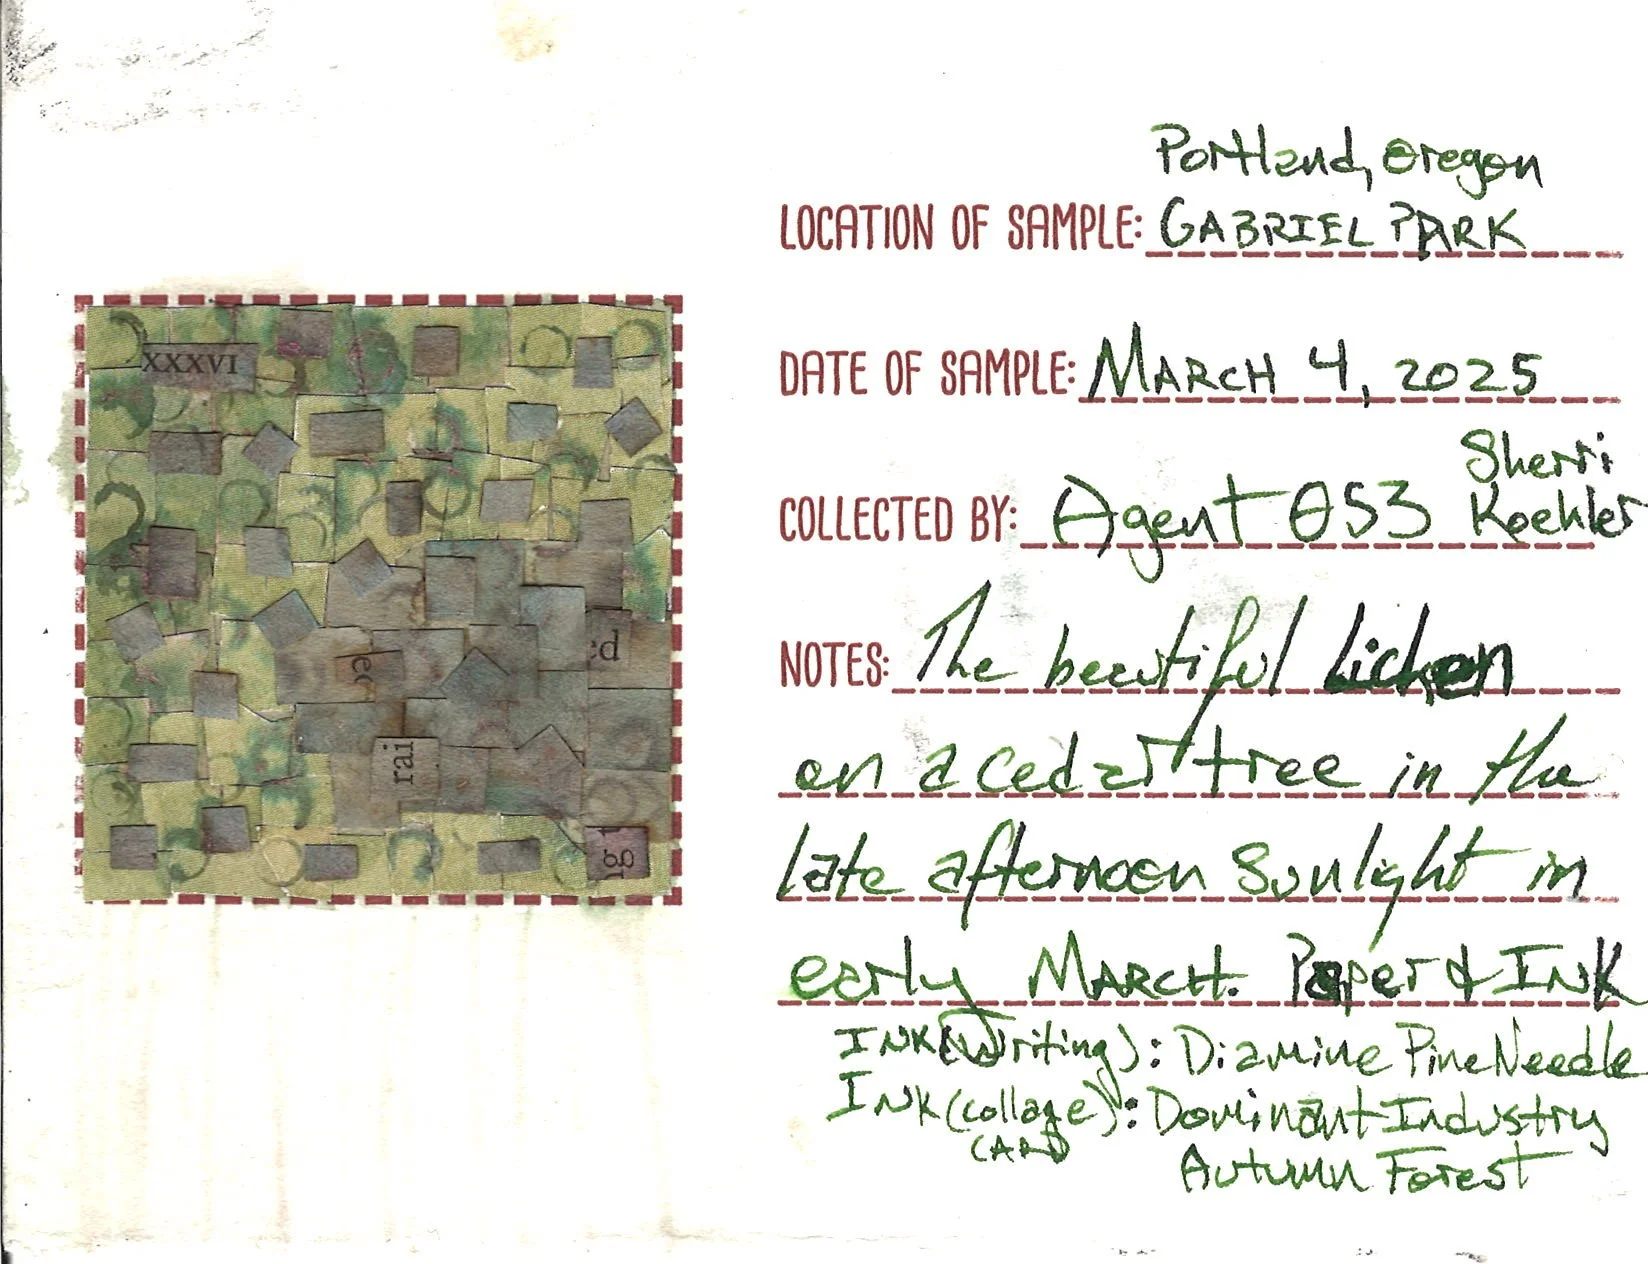 XXXVI
ed
ec
rai
Portland, Oregon
LOCATION OF SAMPLE: GABRIEL PARK
DATE OF SAMPLE: MARCH 4, 2025
Sherri
COLLECTED BY: Agent 053 Koehler
NOTES: The beautiful Lichen
on a cedar tree in the
late afternoon sunlight in
early MARCH. Paper & INK
INK (Writing): Diamine Pine Needle
INK (collage): Dominant Industry
(ART)
Autumn Forest